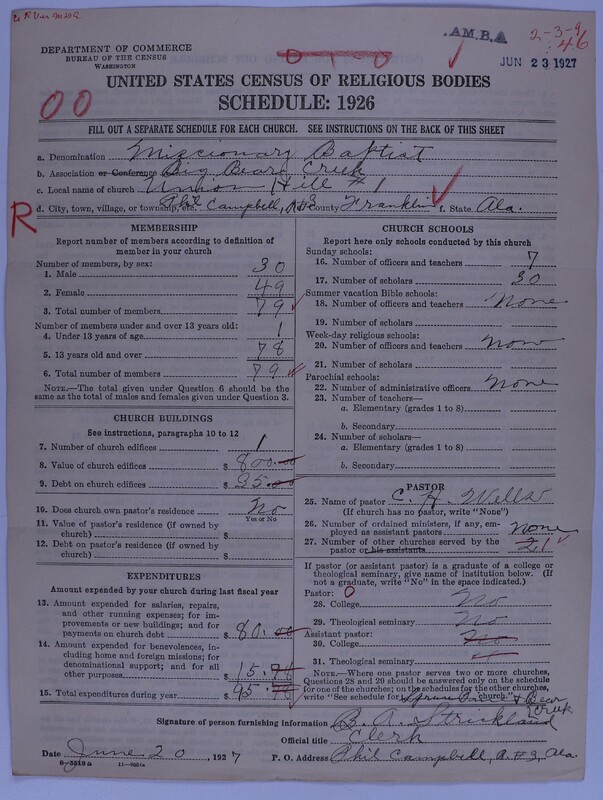 .A.M.B.A
2-3-9
46
JUN 23 1927
DEPARTMENT OF COMMERCE
BUREAU OF THE CENSUS
WASHINGTON
UNITED STATES CENSUS OF RELIGIOUS BODIES
SCHEDULE: 1926
00
FILL OUT A SEPARATE SCHEDULE FOR EACH CHURCH. SEE INSTRUCTIONS ON THE BACK OF THIS SHEET
a. Denomination Missionary Baptist
b. Association or Conference Big Bear Creek
c. Local name of church Union Hill #1
d. City, town, village, or township, etc. Phil Campbell, R#3 County Franklin f. State Ala.
R
MEMBERSHIP
Report number of members according to definition of
member in your church
Number of members, by sex:
1. Male 30
2. Female 49
3. Total number of members 79
Number of members under and over 13 years old:
4. Under 13 years of age 1
5. 13 years old and over 78
6. Total number of members 79
NOTE.—The total given under Question 6 should be
the same as the total of males and females given under Question 3.
CHURCH BUILDINGS
See instructions, paragraphs 10 to 12
7. Number of church edifices 1
8. Value of church edifices $ 800.00
9. Debt on church edifices $ 35.00
10. Does church own pastor's residence? No
Yes or No
11. Value of pastor's residence (if owned by
church) $
12. Debt on pastor's residence (if owned by
church) $
EXPENDITURES
Amount expended by your church during last fiscal year
13. Amount expended for salaries, repairs,
and other running expenses; for im-
provements or new buildings; and for
payments on church debt $ 80.00
14. Amount expended for benevolences,
including home and foreign missions; for
denominational support; and for all
other purposes $ 15.98
15. Total expenditures during year $ 95.98
CHURCH SCHOOLS
Report here only schools conducted by this church
Sunday schools:
16. Number of officers and teachers 7
17. Number of scholars 30
Summer vacation Bible schools:
18. Number of officers and teachers None
19. Number of scholars
Week-day religious schools:
20. Number of officers and teachers None
21. Number of scholars
Parochial schools:
22. Number of administrative officers None
23. Number of teachers—
a. Elementary (grades 1 to 8)
b. Secondary
24. Number of scholars—
a. Elementary (grades 1 to 8)
b. Secondary
PASTOR
25. Name of pastor C. H. Wells
(If church has no pastor, write "None")
26. Number of ordained ministers, if any, em-
ployed as assistant pastors None
27. Number of other churches served by the
pastor or his assistants 21
If pastor (or assistant pastor) is a graduate of a college or
theological seminary, give name of institution below. (If
not a graduate, write "No" in the space indicated.)
Pastor: 0
28. College No
29. Theological seminary No
Assistant pastor:
30. College No
31. Theological seminary
NOTE.—Where one pastor serves two or more churches,
Questions 28 and 29 should be answered only on the schedule
for one of the churches; on the schedules for the other churches,
write "See schedule for church." & Bear
Creek
Signature of person furnishing information B. A. Strickland
Official title Clerk
Date June 20, 1927 P. O. Address Phil Campbell, R.#3, Ala.